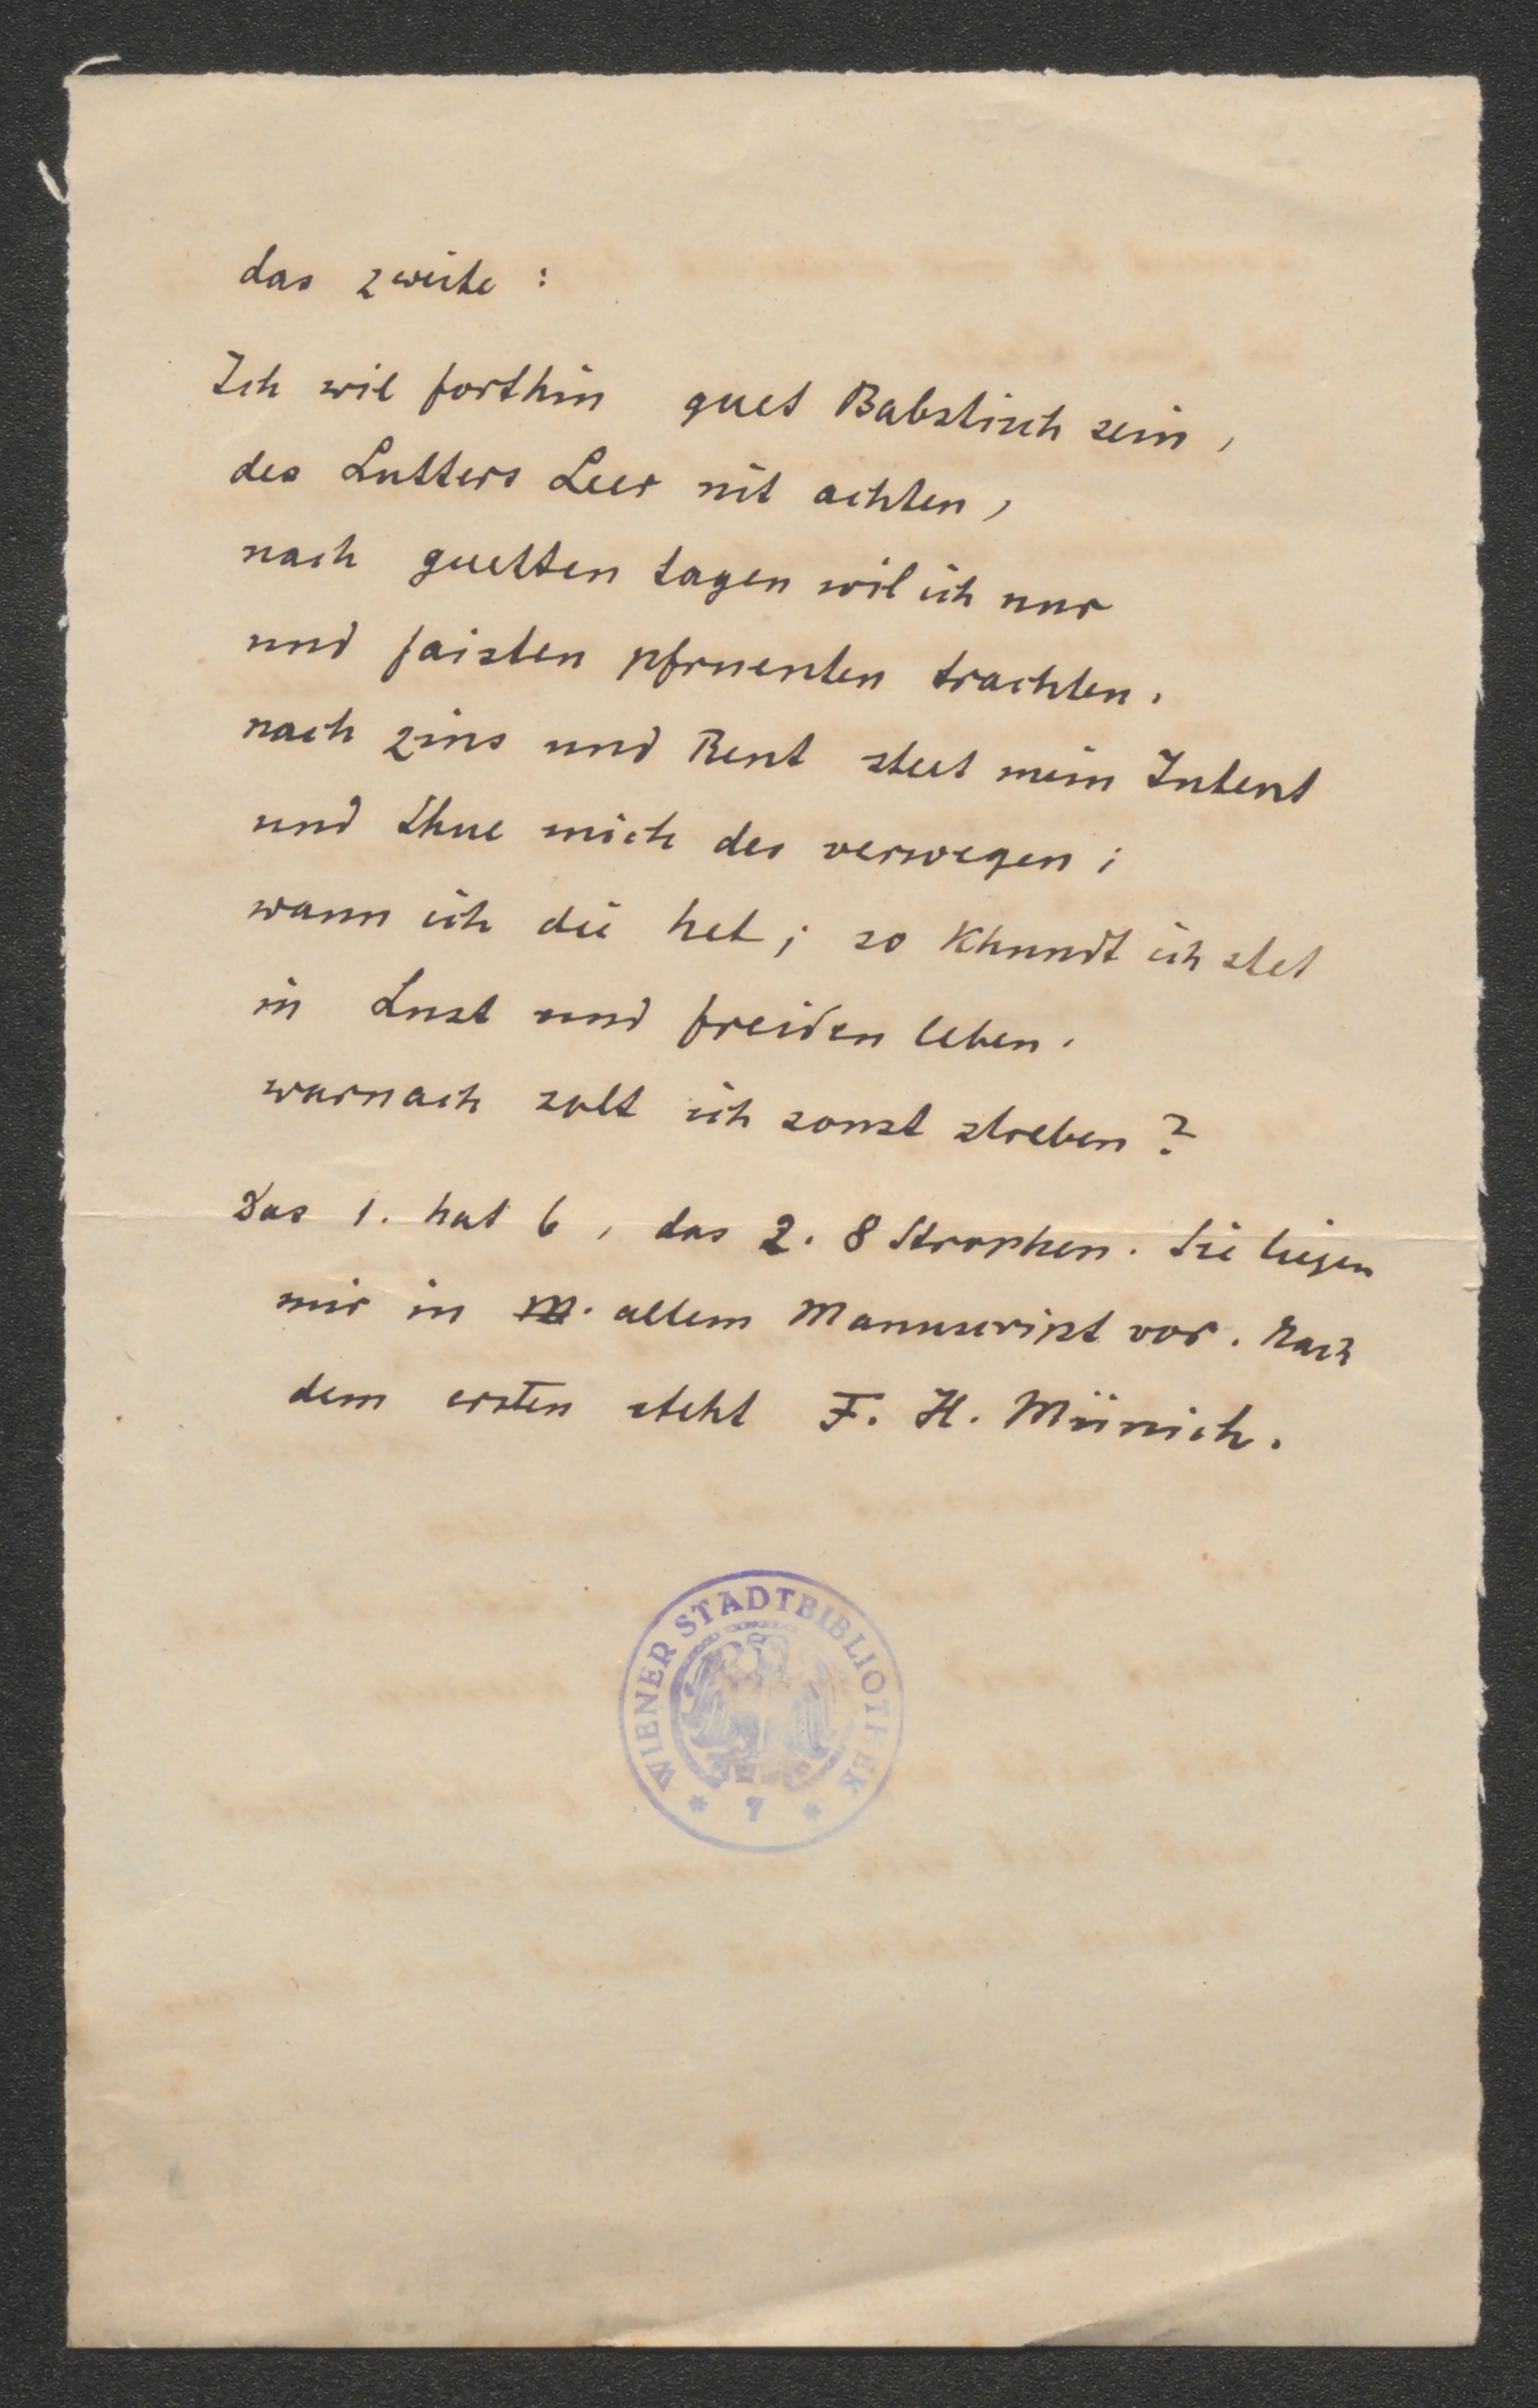 das zweite :
Ich wil forthin guet Babstisch sein,
des Lutters Leer nit achten,
nach guetten tagen wil ich nur
und faisten pfruenten trachten.
nach zins und Rent steet mein Intent
und thue mich des verwegen;
wann ich die het; so Khundt ich stet
in Lust und freiden leben.
warnach solt ich sonst streben?
Das 1. hat 6, das 2. 8 Strophen. Sie liegen
mir in altem Manuscript vor. Nach
dem ersten steht F. H. Münich.
WIENER STADTBIBLIOTHEK
* 7 *